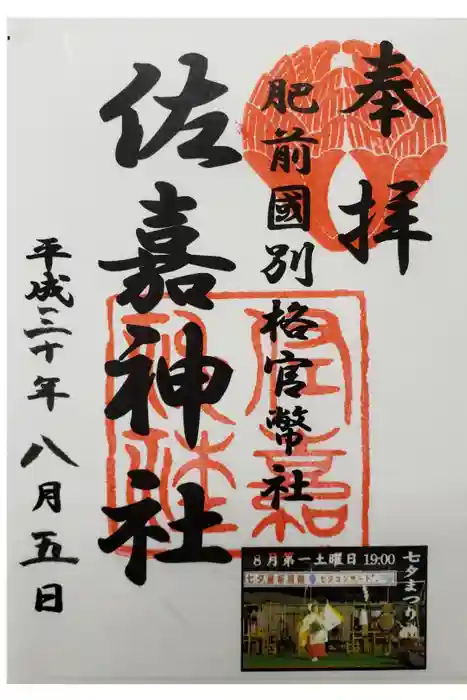 奉拝
肥前國別格官幣社
佐嘉神社
平成三十年八月五日
佐嘉
神社
8月第一土曜日 19:00
七夕まつり